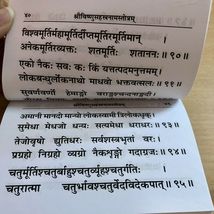 ४० श्रीविष्णुसहस्रनामस्तोत्रम्
विश्वमूर्तिर्महामूर्तिर्दीप्तमूर्तिरमूर्तिमान् ।
अनेकमूर्तिरव्यक्तः शतमूर्तिः शताननः ॥ ९० ॥
एको नैकः सवः कः किं यत्तत्पदमनुत्तमम् ।
लोकबन्धुर्लोकनाथो माधवो भक्तवत्सलः ॥ ९१ ॥
सुवर्णवर्णो हेमाङ्गो वराङ्गश्चन्दनाङ्गदी ।
अमानी मानदो मान्यो लोकस्वामी त्रिलोकधृक् ।
सुमेधा मेधजो धन्यः सत्यमेधा धराधरः ॥ ९३ ॥
तेजोवृषो द्युतिधरः सर्वशस्त्रभृतां वरः ।
प्रग्रहो निग्रहो व्यग्रो नैकशृङ्गो गदाग्रजः ॥ ९४ ॥
चतुर्मूर्तिश्चतुर्बाहुश्चतुर्व्यूहश्चतुर्गतिः ।
चतुरात्मा चतुर्भावश्चतुर्वेदविदेकपात् ॥ ९५ ॥